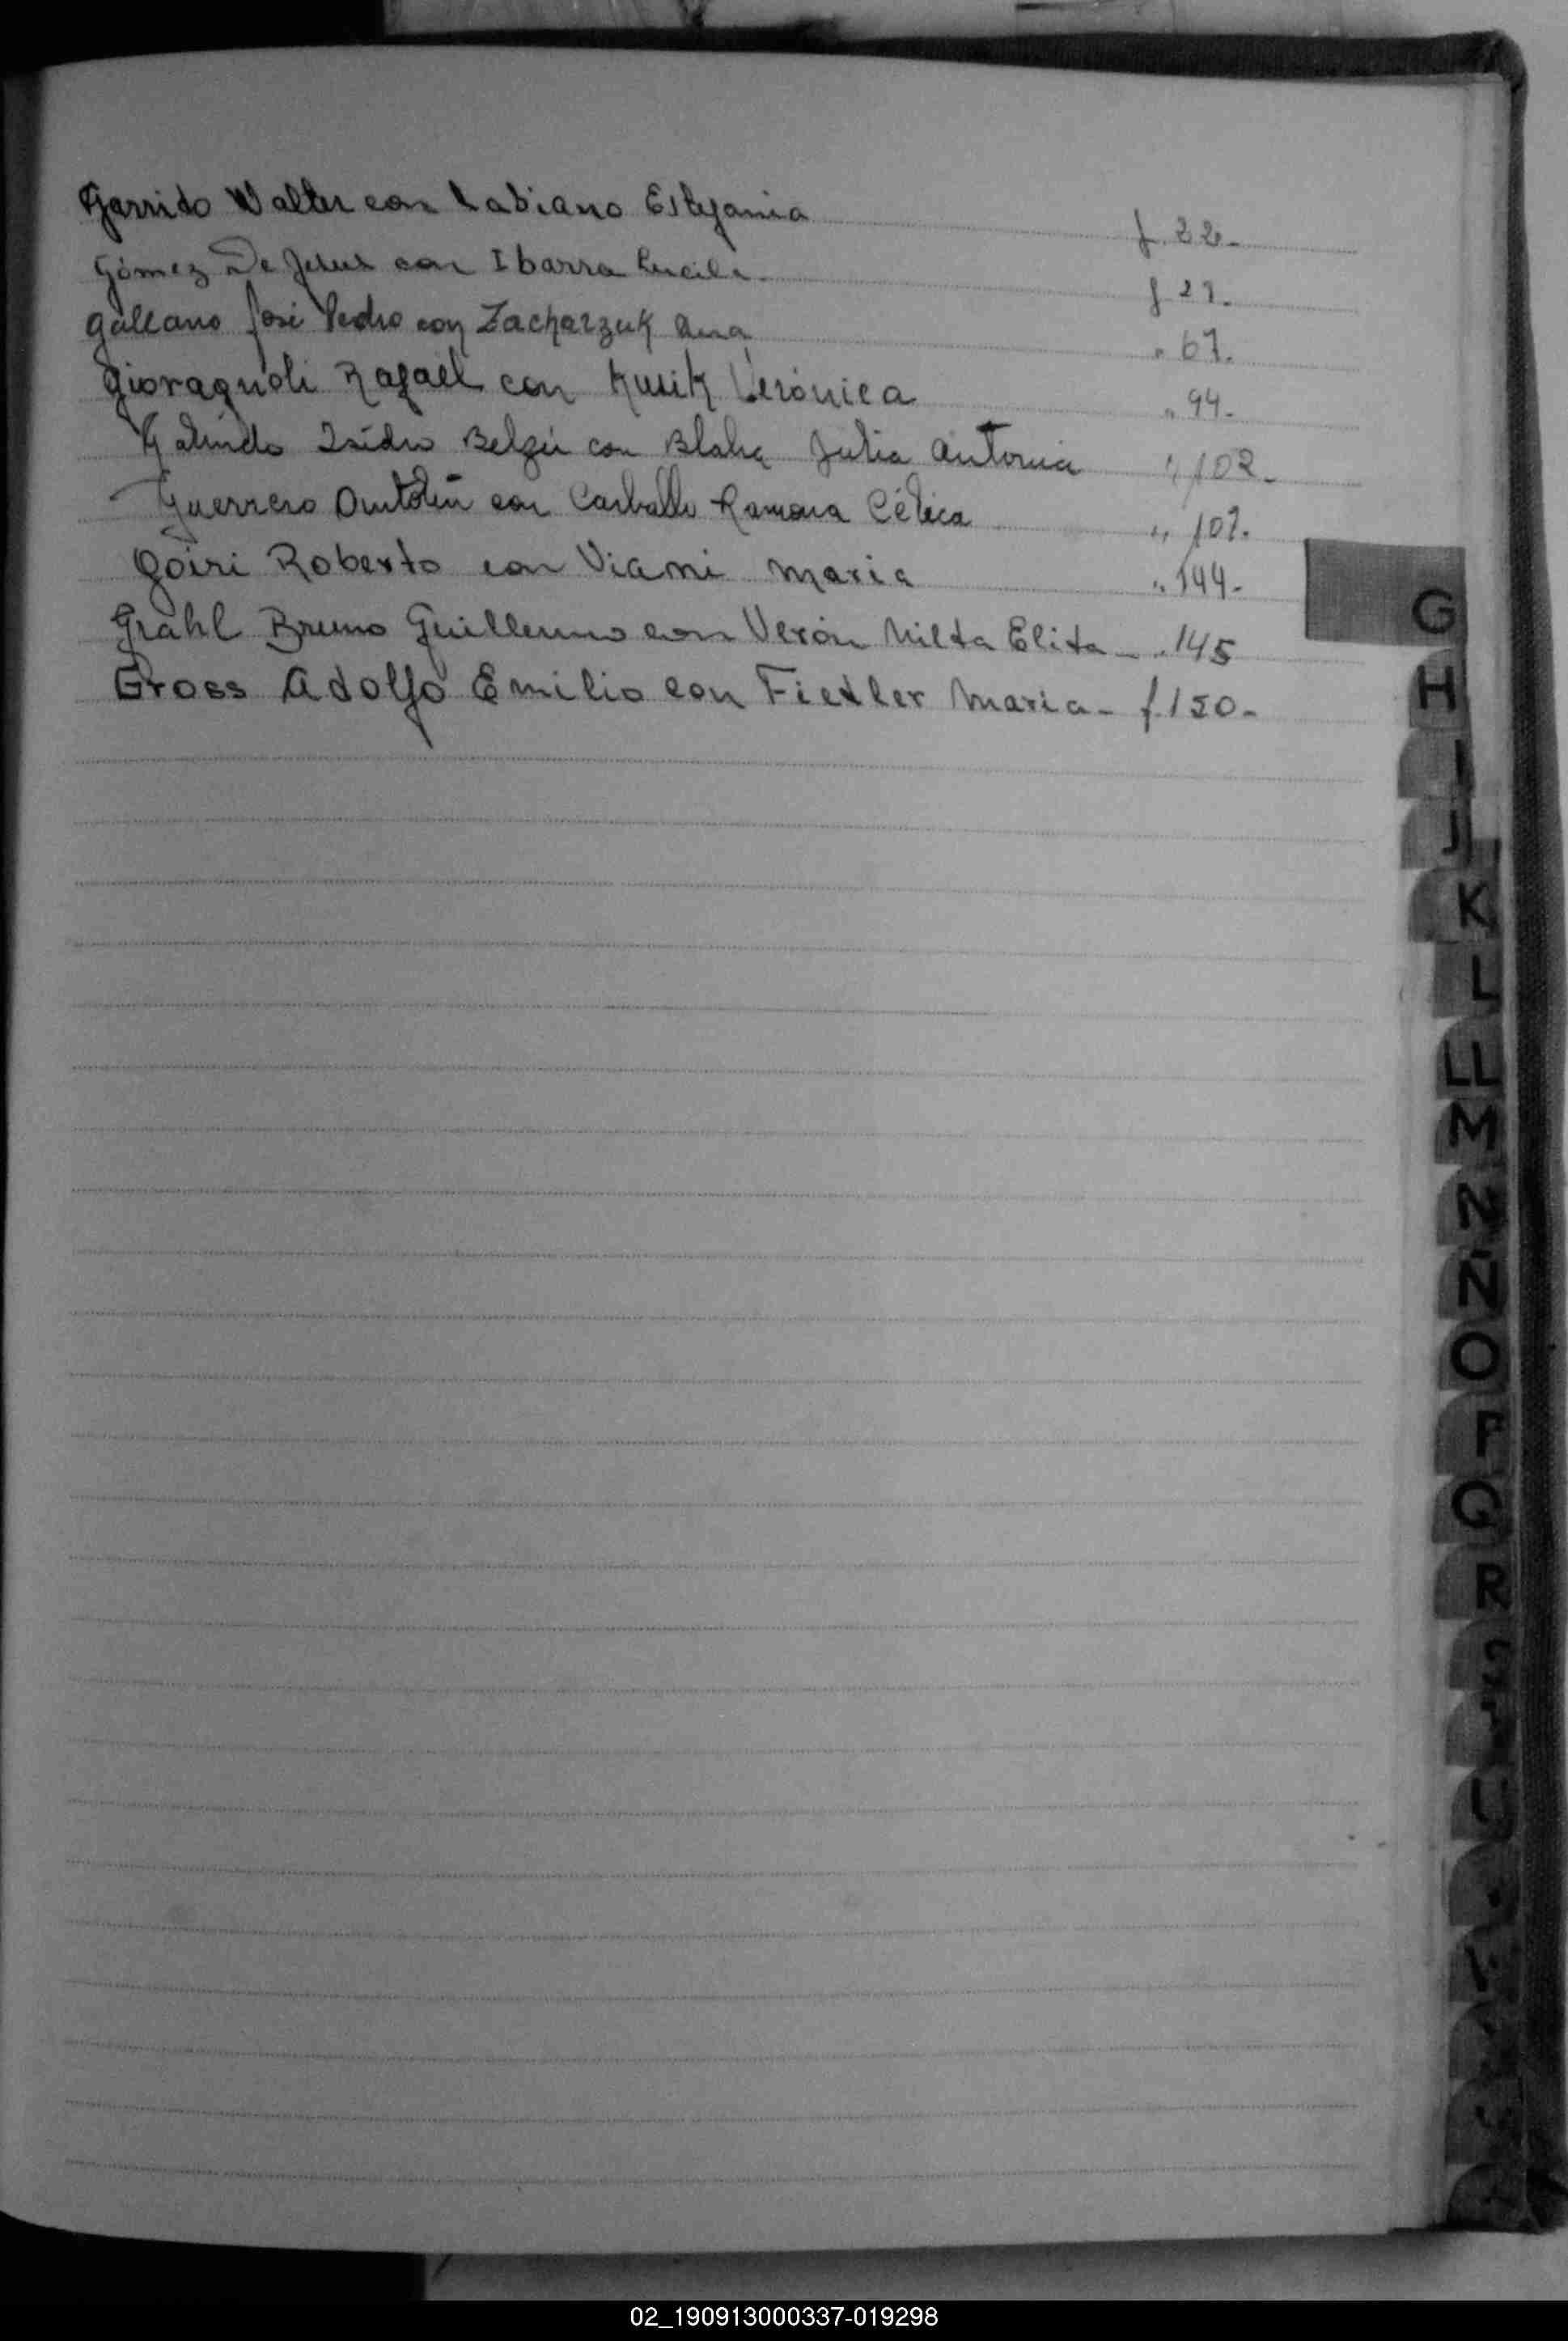 Garrido Walter con Labiano Estefania f. 22.-
Gómez De Jesus con Ibarra Lucila f 27.
Galeano José Pedro con Zacharzuk Ana " 67.
Giovagnoli Rafaél con Kusik Verónica " 94.-
Galindo Isidro Belzú con Blaha Julia Antonia " 102.-
Guerrero Antolín con Carballo Ramona Célica " 107.
Goiri Roberto con Viami Maria " 144.-
Grahl Bruno Guillermo con Verón Nilda Elida - " 145
Gross Adolfo Emilio con Fiedler Maria - f. 150-
G
H
I
J
K
L
LL
M
N
Ñ
O
P
Q
R
S
T
U
02_190913000337-019298